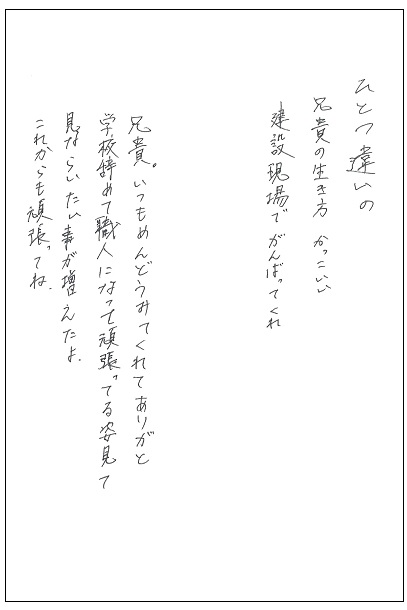 ひとつ違いの
兄貴の生き方 かっこいい
建設現場でがんばってくれ
兄貴。いつもめんどうみてくれてありがと
学校辞めて職人になって頑張ってる姿見て
見ならいたい事が増えたよ.
これからも頑張ってね.